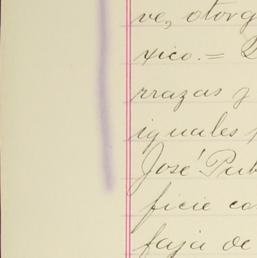 ve, otorg
xico.=
rrazas y
iguales p
José Pub
ficie co
faja de